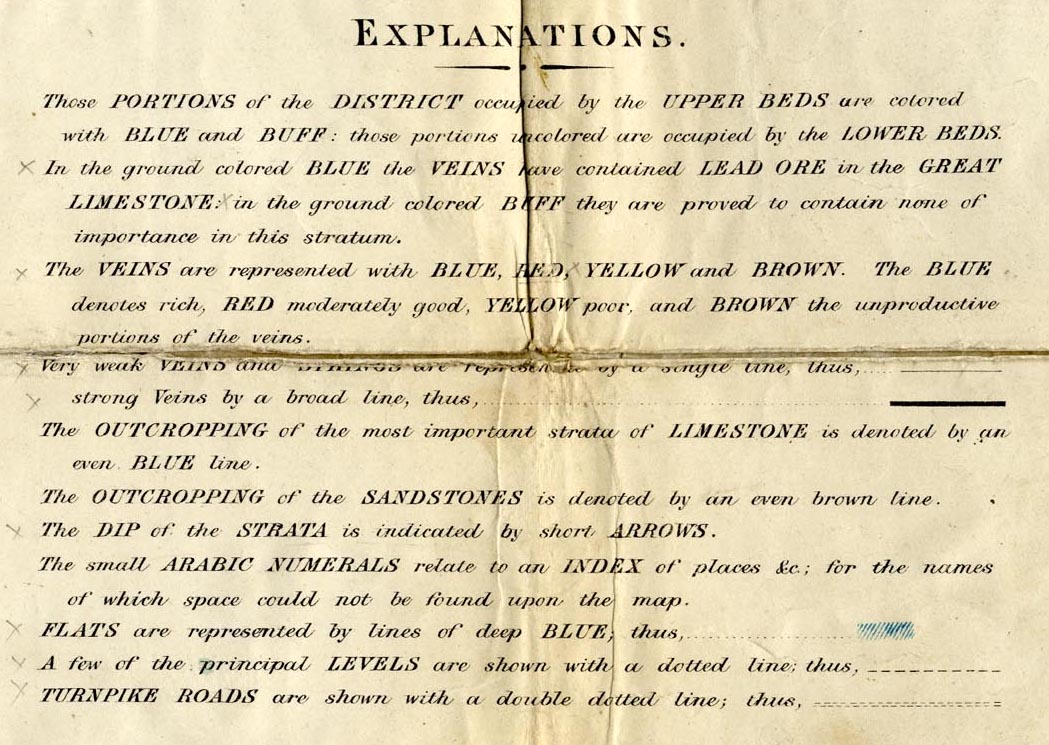 EXPLANATIONS.
Those PORTIONS of the DISTRICT occupied by the UPPER BEDS are colored
with BLUE and BUFF: those portions uncolored are occupied by the LOWER BEDS.
In the ground colored BLUE the VEINS have contained LEAD ORE in the GREAT
LIMESTONE: in the ground colored BUFF they are proved to contain none of
importance in this stratum.
The VEINS are represented with BLUE, RED, YELLOW and BROWN. The BLUE
denotes rich, RED moderately good, YELLOW poor, and BROWN the unproductive
portions of the veins.
Very weak VEINS and STRINGS are represented by a single line, thus,
strong Veins by a broad line, thus,
The OUTCROPPING of the most important strata of LIMESTONE is denoted by an
even BLUE line.
The OUTCROPPING of the SANDSTONES is denoted by an even brown line.
The DIP of the STRATA is indicated by short ARROWS.
The small ARABIC NUMERALS relate to an INDEX of places &c.; for the names
of which space could not be found upon the map.
FLATS are represented by lines of deep BLUE; thus,
A few of the principal LEVELS are shown with a dotted line; thus,
TURNPIKE ROADS are shown with a double dotted line; thus,